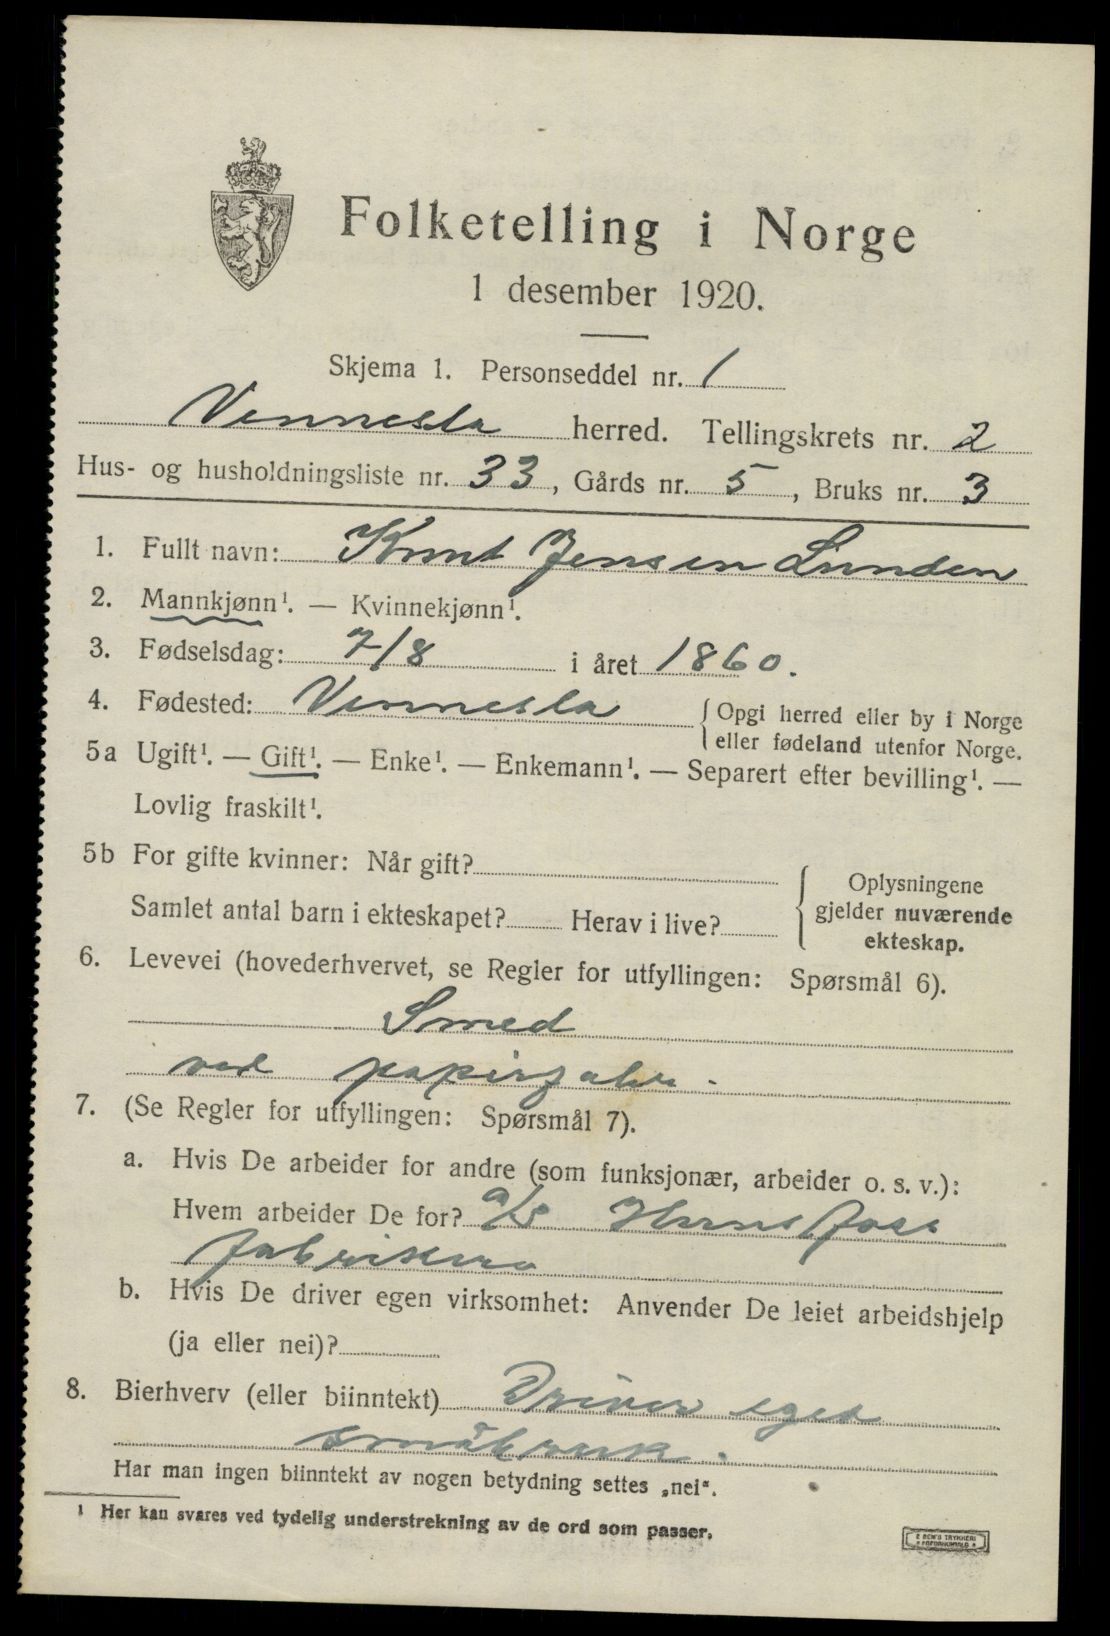 Folketelling i Norge
1 desember 1920.
Skjema 1. Personseddel nr. 1
Vennesla herred. Tellingskrets nr. 2
Hus- og husholdningsliste nr. 33, Gårds nr. 5, Bruks nr. 3
1. Fullt navn: Knut Jensen Lunden
2. Mannkjønn¹. — Kvinnekjønn¹.
3. Fødselsdag: 7/8 i året 1860.
4. Fødested: Vennesla { Opgi herred eller by i Norge
eller fødeland utenfor Norge.
5a Ugift¹. — Gift¹. — Enke¹. — Enkemann¹. — Separert efter bevilling¹. —
Lovlig fraskilt¹.
5b For gifte kvinner: Når gift?
Samlet antal barn i ekteskapet? Herav i live?
{ Oplysningene
gjelder nuværende
ekteskap.
6. Levevei (hovederhvervet, se Regler for utfyllingen: Spørsmål 6).
Smed
ved papirfabr.
7. (Se Regler for utfyllingen: Spørsmål 7).
a. Hvis De arbeider for andre (som funksjonær, arbeider o. s. v.):
Hvem arbeider De for? a/s Hunsfoss
fabrikker
b. Hvis De driver egen virksomhet: Anvender De leiet arbeidshjelp
(ja eller nei)?
8. Bierhverv (eller biinntekt) Driver eget
småbruk.
Har man ingen biinntekt av nogen betydning settes „nei“.
¹ Her kan svares ved tydelig understrekning av de ord som passer.